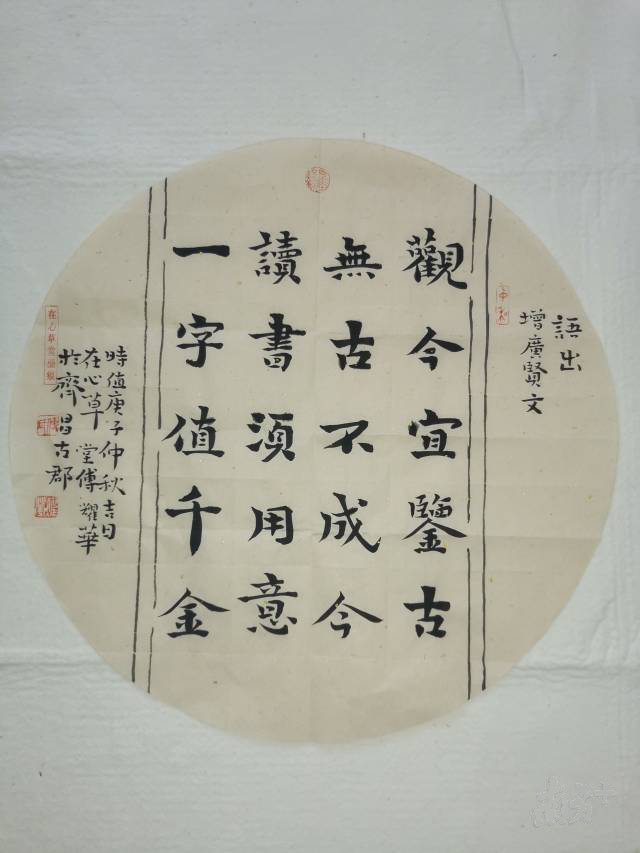 語出
增廣賢文
觀今宜鑒古
無古不成今
讀書須用意
一字值千金
時值庚子仲秋吉日
在心草堂傅耀華
於齊昌古郡